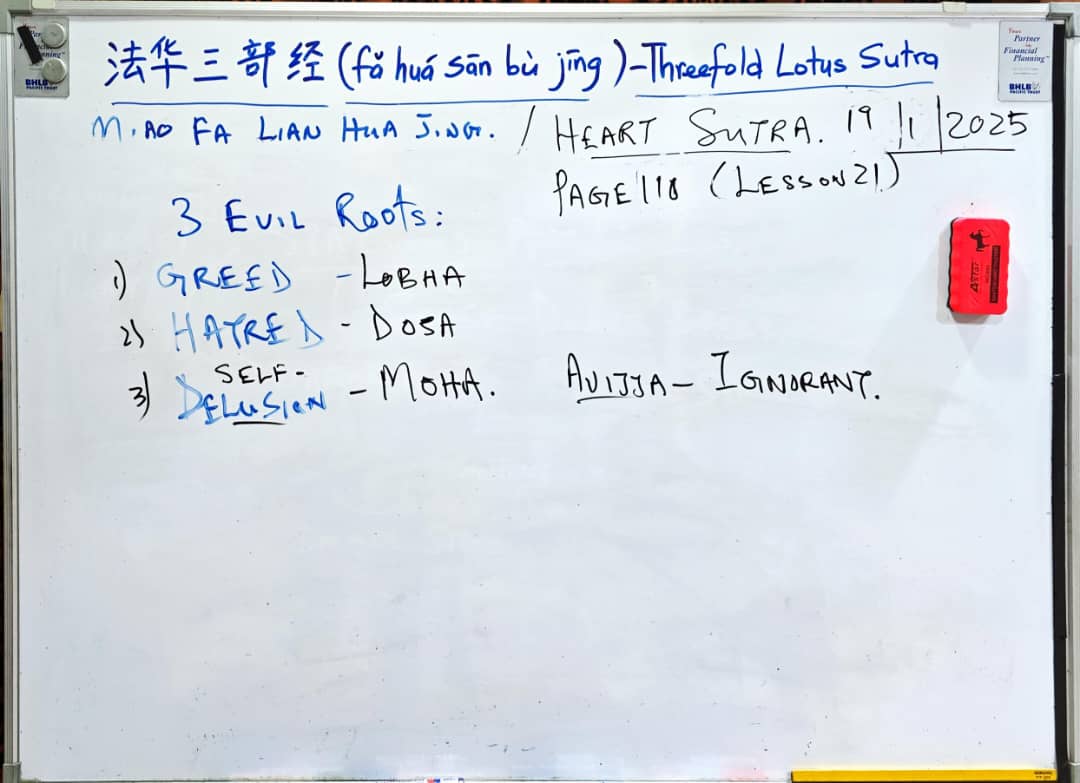 法华三部经 (fǎ huá sān bù jīng) - Threefold Lotus Sutra
MIAO FA LIAN HUA JING. / HEART SUTRA. 19/1/2025
PAGE 118 (LESSON 21)
3 EVIL ROOTS:
1) GREED - LOBHA
2) HATRED - DOSA
3) SELF-DELUSION - MOHA. AVIJJA - IGNORANT.
Your Partner in Financial Planning
BHLB
PACIFIC TRUST
ARTAR